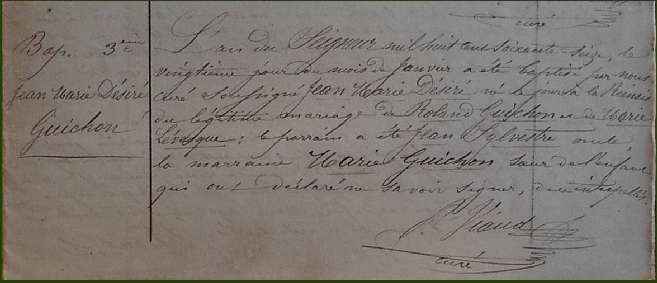 curé
Bap. 3ème
Jean Marie Désiré
Guichon
L'an du Seigneur mil huit cent soixante-seize, le
vingtième jour du mois de Janvier a été baptisé par nous
curé soussigné Jean Marie Désiré né le jour à la
du légitime mariage de Roland Guichon et de Marie
Lévesque; le parrain a été Jean Sylvestre oncle
la marraine Marie Guichon sœur de l'enfant
qui ont déclaré ne savoir signer, de ce interpellés.
curé